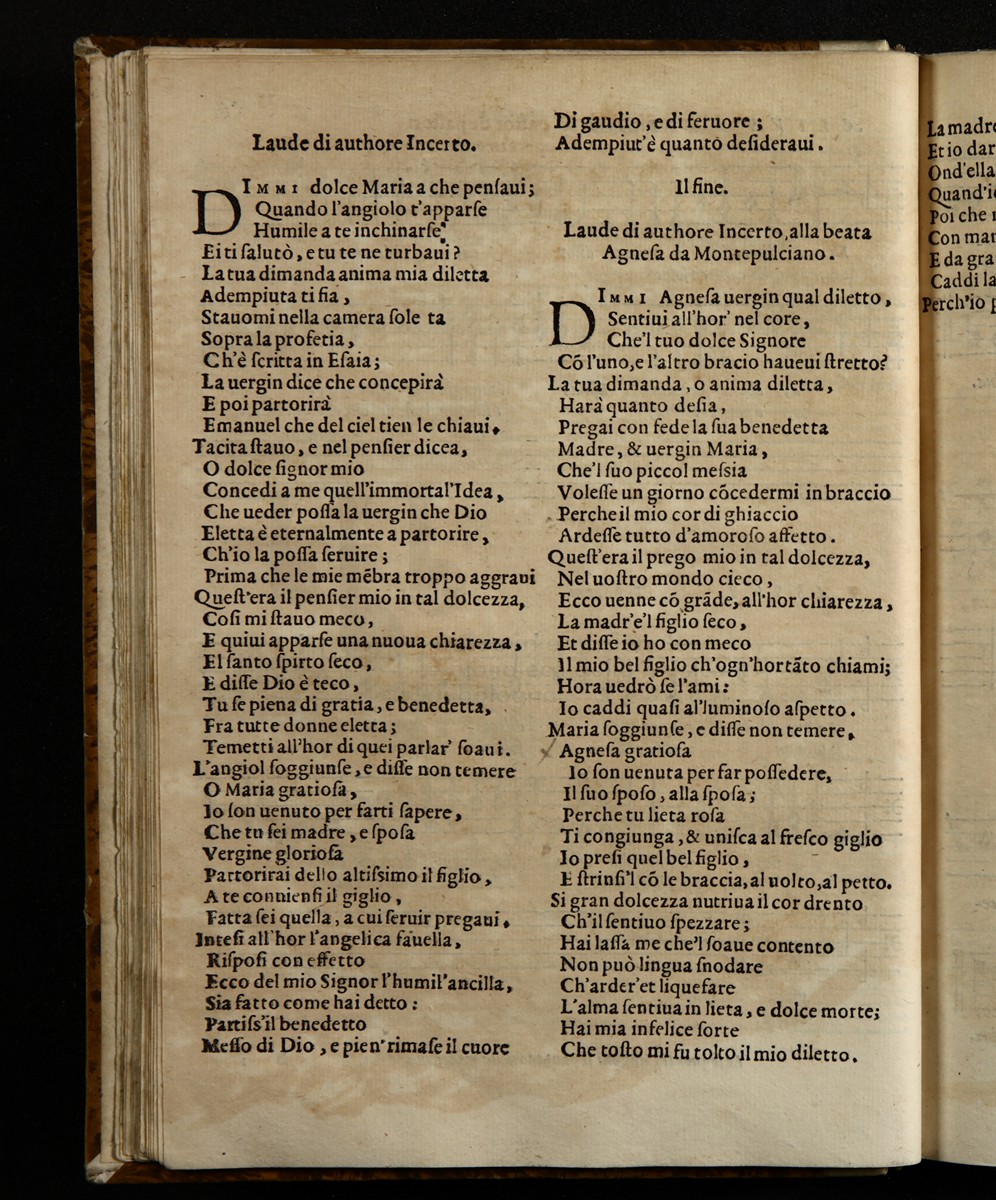 Laude di authore Incerto.
DIMMI dolce Maria a che penſaui;
Quando l'angiolo t'apparſe
Humile a te inchinarſe,
Ei ti ſalutò, e tu te ne turbaui?
La tua dimanda anima mia diletta
Adempiuta ti fia,
Stauomi nella camera ſole ta
Sopra la profetia,
Ch'è ſcritta in Eſaia;
La uergin dice che concepirà
E poi partorirà
Emanuel che del ciel tien le chiaui.
Tacita ſtauo, e nel penſier dicea,
O dolce ſignor mio
Concedi a me quell'immortal'Idea,
Che ueder poſſa la uergin che Dio
Eletta è eternalmente a partorire,
Ch'io la poſſa ſeruire;
Prima che le mie mẽbra troppo aggraui
Queſt'era il penſier mio in tal dolcezza,
Coſi mi ſtauo meco,
E quiui apparſe una nuoua chiarezza,
El ſanto ſpirto ſeco,
E diſſe Dio è teco,
Tu ſe piena di gratia, e benedetta,
Fra tutte donne eletta;
Temetti all'hor di quei parlar' ſoaui.
L'angiol ſoggiunſe, e diſſe non temere
O Maria gratioſa,
Io ſon uenuto per farti ſapere,
Che tu ſei madre, e ſpoſa
Vergine glorioſa
Partorirai dello altiſsimo il figlio,
A te conuienſi il giglio,
Fatta ſei quella, a cui ſeruir pregaui.
Inteſi all'hor l'angelica fauella,
Riſpoſi con effetto
Ecco del mio Signor l'humil'ancilla,
Sia fatto come hai detto:
Partiſs'il benedetto
Meſſo di Dio, e pien'rimaſe il cuore
Di gaudio, e di feruore;
Adempiut'è quanto deſideraui.
Il fine.
Laude di authore Incerto, alla beata
Agneſa da Montepulciano.
DIMMI Agneſa uergin qual diletto,
Sentiui all'hor' nel core,
Che'l tuo dolce Signore
Cõ l'uno, e l'altro bracio haueui ſtretto?
La tua dimanda, o anima diletta,
Harà quanto deſia,
Pregai con fede la ſua benedetta
Madre, & uergin Maria,
Che'l ſuo piccol meſsia
Voleſſe un giorno cõcedermi in braccio
Perche il mio cor di ghiaccio
Ardeſſe tutto d'amoroſo affetto.
Queſt'era il prego mio in tal dolcezza,
Nel uoſtro mondo cieco,
Ecco uenne cõ grãde, all'hor chiarezza,
La madr'e'l figlio ſeco,
Et diſſe io ho con meco
Il mio bel figlio ch'ogn'hor tãto chiami;
Hora uedrò ſe l'ami:
Io caddi quaſi al'luminoſo aſpetto.
Maria ſoggiunſe, e diſſe non temere,
Agneſa gratioſa
Io ſon uenuta per far poſſedere,
Il ſuo ſpoſo, alla ſpoſa;
Perche tu lieta roſa
Ti congiunga, & uniſca al freſco giglio
Io preſi quel bel figlio,
E ſtrinſi'l cõ le braccia, al uolto, al petto.
Si gran dolcezza nutriua il cor drento
Ch'il ſentiuo ſpezzare;
Hai laſſa me che'l ſoaue contento
Non può lingua ſnodare
Ch'arder'et liquefare
L'alma ſentiua in lieta, e dolce morte;
Hai mia infelice ſorte
Che toſto mi fu tolto il mio diletto.
La madre
Et io dar
Ond'ella
Quand'i
Poi che
Con mar
E da gra
Caddi la
Perch'io